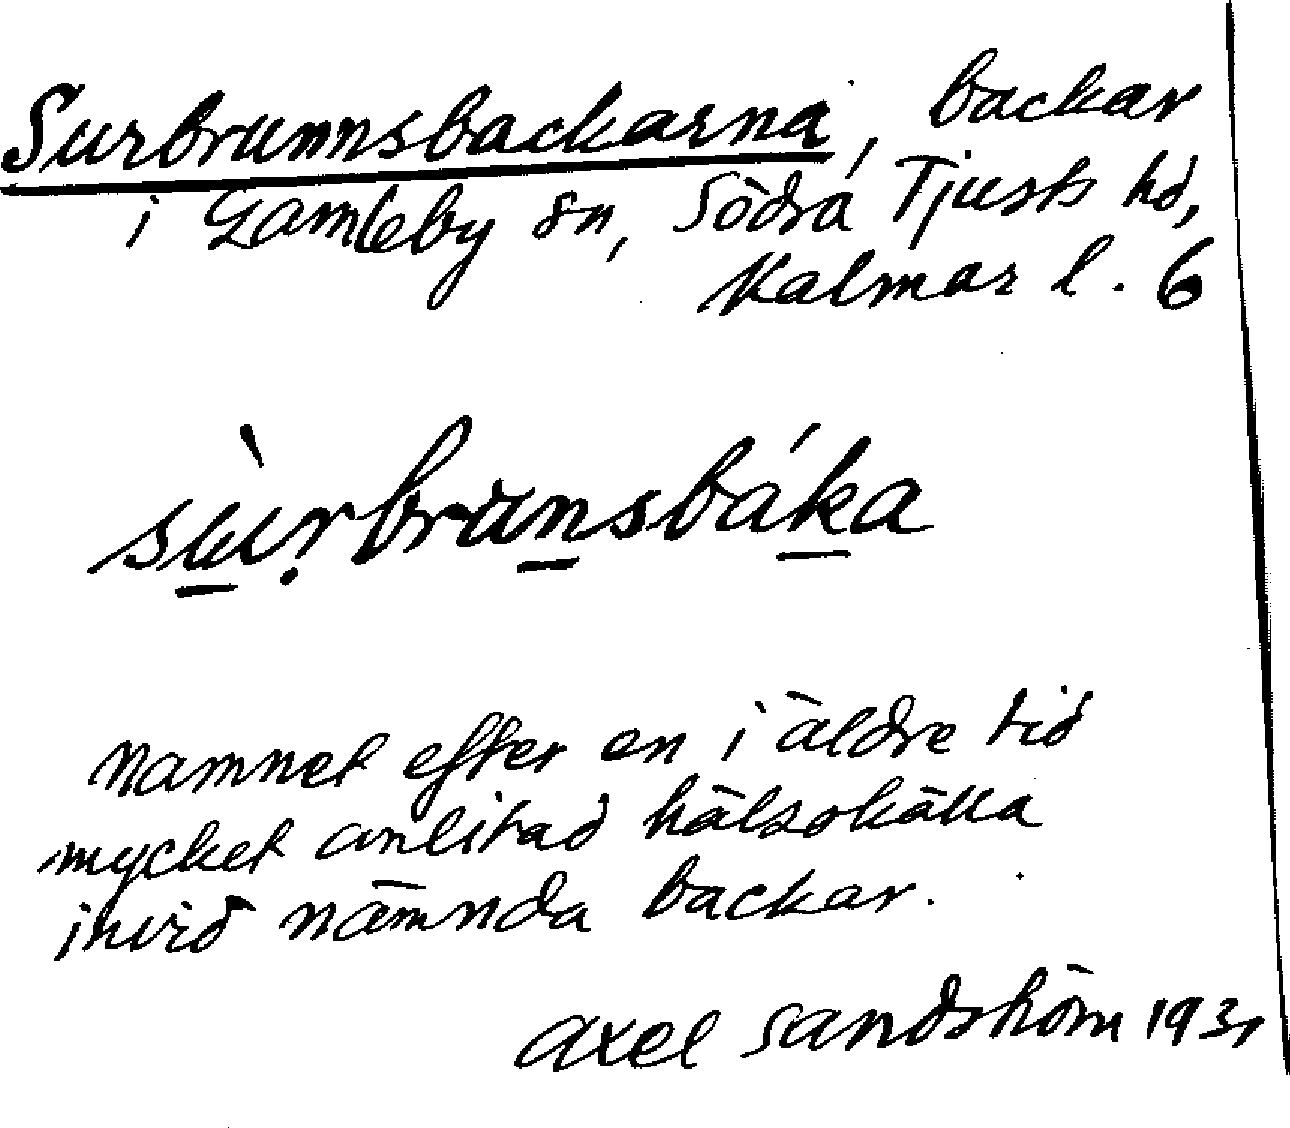 Surbrunnsbackarna, backar
i Gamleby sn, Södra Tjusts hd,
Kalmar l. 6
sùrbrunsbáka
Namnet efter en i äldre tid
mycket anlitad hälsokälla
invid nämnda backar.
Axel Sandström 1931